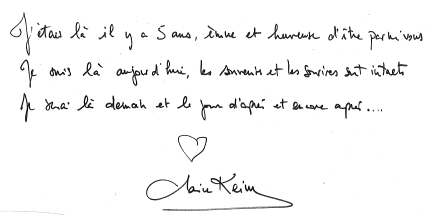 J'étais là il y a 5 ans, émue et heureuse d'être parmi vous
Je suis là aujourd'hui, les souvenirs et les sourires sont intacts
Je serai là demain et le jour d'après et encore après....
Claire Keim